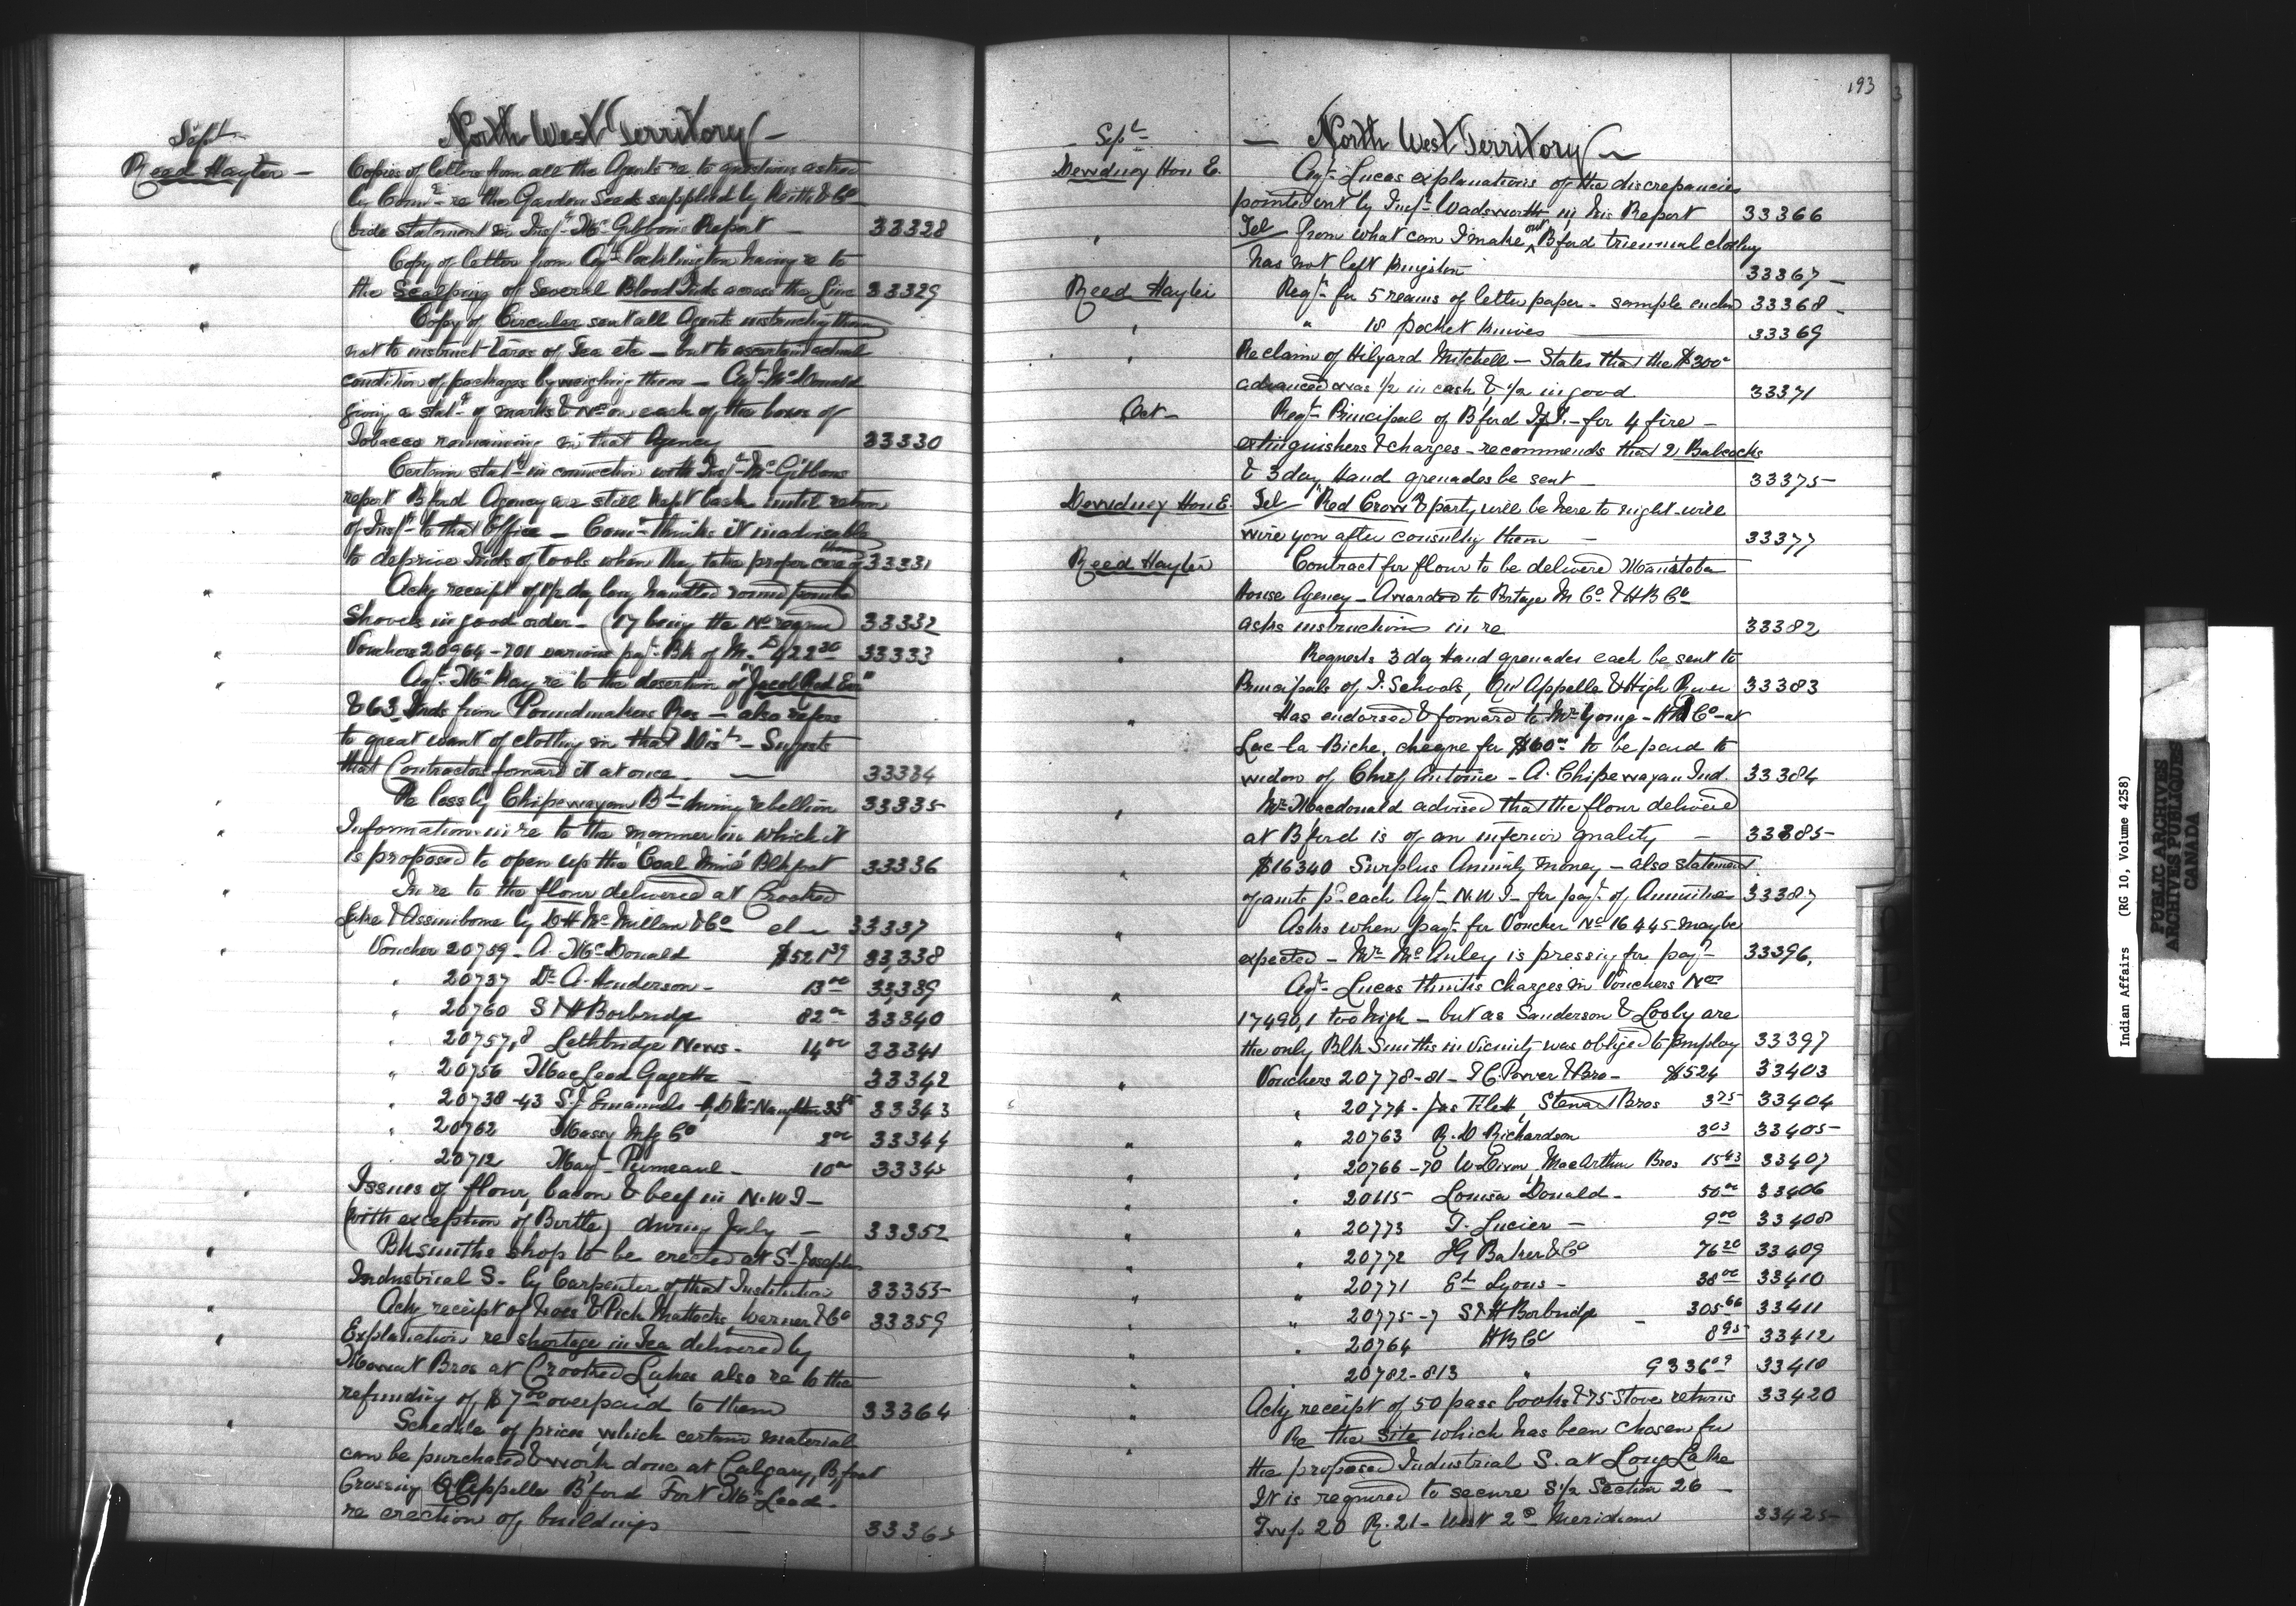 Sept
North West Territory
Reed Hayter
Copies of letters from all the Agents re to questions asked
by Comr re the Garden Seeds supplied by Keith & Co
(vide statement in Insp. McGibbons Report 33328
Copy of letter from Agt Pocklington having re to
the Scalping of Several Blood Inds across the Line 33329
Copy of Circular sent all Agents instructing them
not to instruct tares of Tea etc - but to ascertain actual
condition of packages by weighing them - Agt McDonald
giving a stat. of marks & Nos on each of the boxes of
Tobacco remaining in that Agency 33330
Certain stat. in connection with Insp. McGibbons
report B'ford Agency are still kept back until return
of Insp. to that Office - Comr thinks it inadvisable
to deprive Inds of tools when they take proper care of them 33331
Ackg receipt of 1½ doz long handled round pointed
Shovels in good order - (17 being the No reqrd) 33332
Vouchers 20964-701 various payt Bk of M. $422 30 33333
Agt McKay re to the desertion of "Jacob Red Ear"
& 63 Inds from Poundmakers Res - also refers
to great want of clothing in that Dist - Suggests
that Contractors forward it at once. 33334
Re loss by Chipewayan Bd during rebellion 33335
Information in re to the manner in which it
is proposed to open up the 'Coal Mine' Blkfoot 33336
In re to the flour delivered at Crooked
Lake & Assiniboine by D H McMillan & Co 33337
Voucher 20759 - A. McDonald $521 39 33338
" 20737 Dr A. Henderson - 13 00 33339
" 20760 S & H Borbridge 82 00 33340
" 20757,8 Lethbridge News - 14 00 33341
" 20756 MacLeod Gazette - 33342
" 20738-43 S. J. Emanuels & D McNaughton 33343
" 20762 Massey Mfg Co 2 00 33344
" 20712 10 00 33345
Issues of flour, bacon & beef in N.W.T -
(with exception of Birtle) during July - 33352
Blksmiths shop to be erected at St Josephs
Industrial S. by Carpenter of that Institution 33355
Ackg receipt of hoes & Pick Mattocks, Warner & Co 33359
Explanation re shortage in Tea delivered by
Mowat Bros at Crooked Lakes also re to the
refunding of $7 00 overpaid to them 33364
Schedule of prices which certain material
can be purchased & work done at Calgary, B'foot
Crossing Q'Appelle B'ford Fort McLeod -
re erection of buildings 33365
193
Sept
North West Territory
Dewdney Hon E.
Agt Lucas explanations of the discrepancies
pointed out by Insp. Wadsworth in his Report 33366
Tel From what can I make out B'ford triennial clothing
has not left Kingston 33367
Reed Hayter
Reqt for 5 reams of letter paper - sample encld 33368
" 18 pocket knives 33369
Re claim of Hilyard Mitchell - States that the $300
advanced was 1/2 in cash & 1/2 in good 33371
Oct
Reqt Principal of B'ford I.S. - for 4 fire
extinguishers & charges - recommends that 2 Babcocks
& 3 doz Hand grenades be sent 33375
Dewdney Hon E.
Tel "Red Crow" & party will be here to night - will
wire you after consulting them 33377
Reed Hayter
Contract for flour to be delivered Manitoba
House Agency - Awarded to Portage M Co & H B Co
asks instructions in re 33382
Requests 3 doz Hand grenades each be sent to
Principals of I. Schools, Qu'Appelle & High River 33383
Has endorsed & forward to Mr Young - H B Co - at
Lac la Biche, cheque for $60 00 to be paid to
widow of Chief Antoine - A. Chipewayan Ind. 33384
Mr Macdonald advised that the flour delivered
at B'ford is of an inferior quality 33385
$16340 Surplus Annuity money - also statement
of amts pd each Agt N.W.T - for payt of Annuities 33387
Asks when payt for Voucher No 16445 may be
expected - Mr McAuley is pressing for payt 33396
Agt Lucas thinks charges in Vouchers Nos
17490,1 too high - but as Sanderson & Looby are
the only Blk Smiths in vicinity was obliged to Employ 33397
Vouchers 20778-81 - I. G. Power & Bro - $524 33403
" 20774 - Stewart Bros 3 75 33404
" 20763 R. D Richardson 3 03 33405
" 20766-70 W Dixon, MacArthur Bros 15 43 33407
" 20115 Louisa Donald - 50 00 33406
" 20773 T. Lucier - 9 00 33408
" 20772 I G Baker & Co 76 20 33409
" 20771 Ed Lyons - 38 00 33410
" 20775-7 S & H Borbridge 305 66 33411
" 20764 H B Co 8 95 33412
20782-813 " 9336 09 33410
Ackg receipt of 50 pass books & 75 Store returns 33420
Re the site which has been chosen for
the proposed Industrial S. at Long Lake
It is required to secure S 1/2 Section 26
Twp 20 R. 21 - West 2d Meridian 33425
Indian Affairs (RG 10, Volume 4258)
PUBLIC ARCHIVES
ARCHIVES PUBLIQUES
CANADA